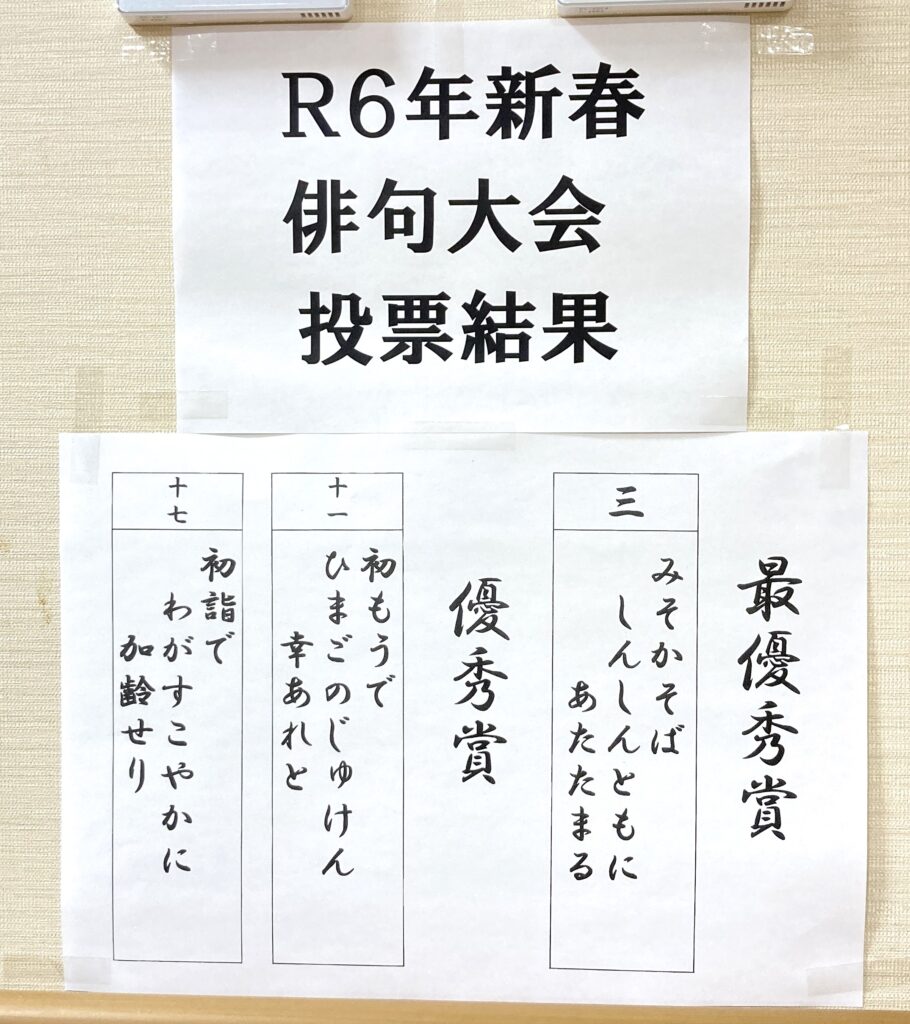 R6年新春
俳句大会
投票結果
最優秀賞
三
みそかそば
しんしんともに
あたたまる
優秀賞
十一
初もうで
ひまごのじゅけん
幸あれと
十七
初詣で
わがすこやかに
加齢せり